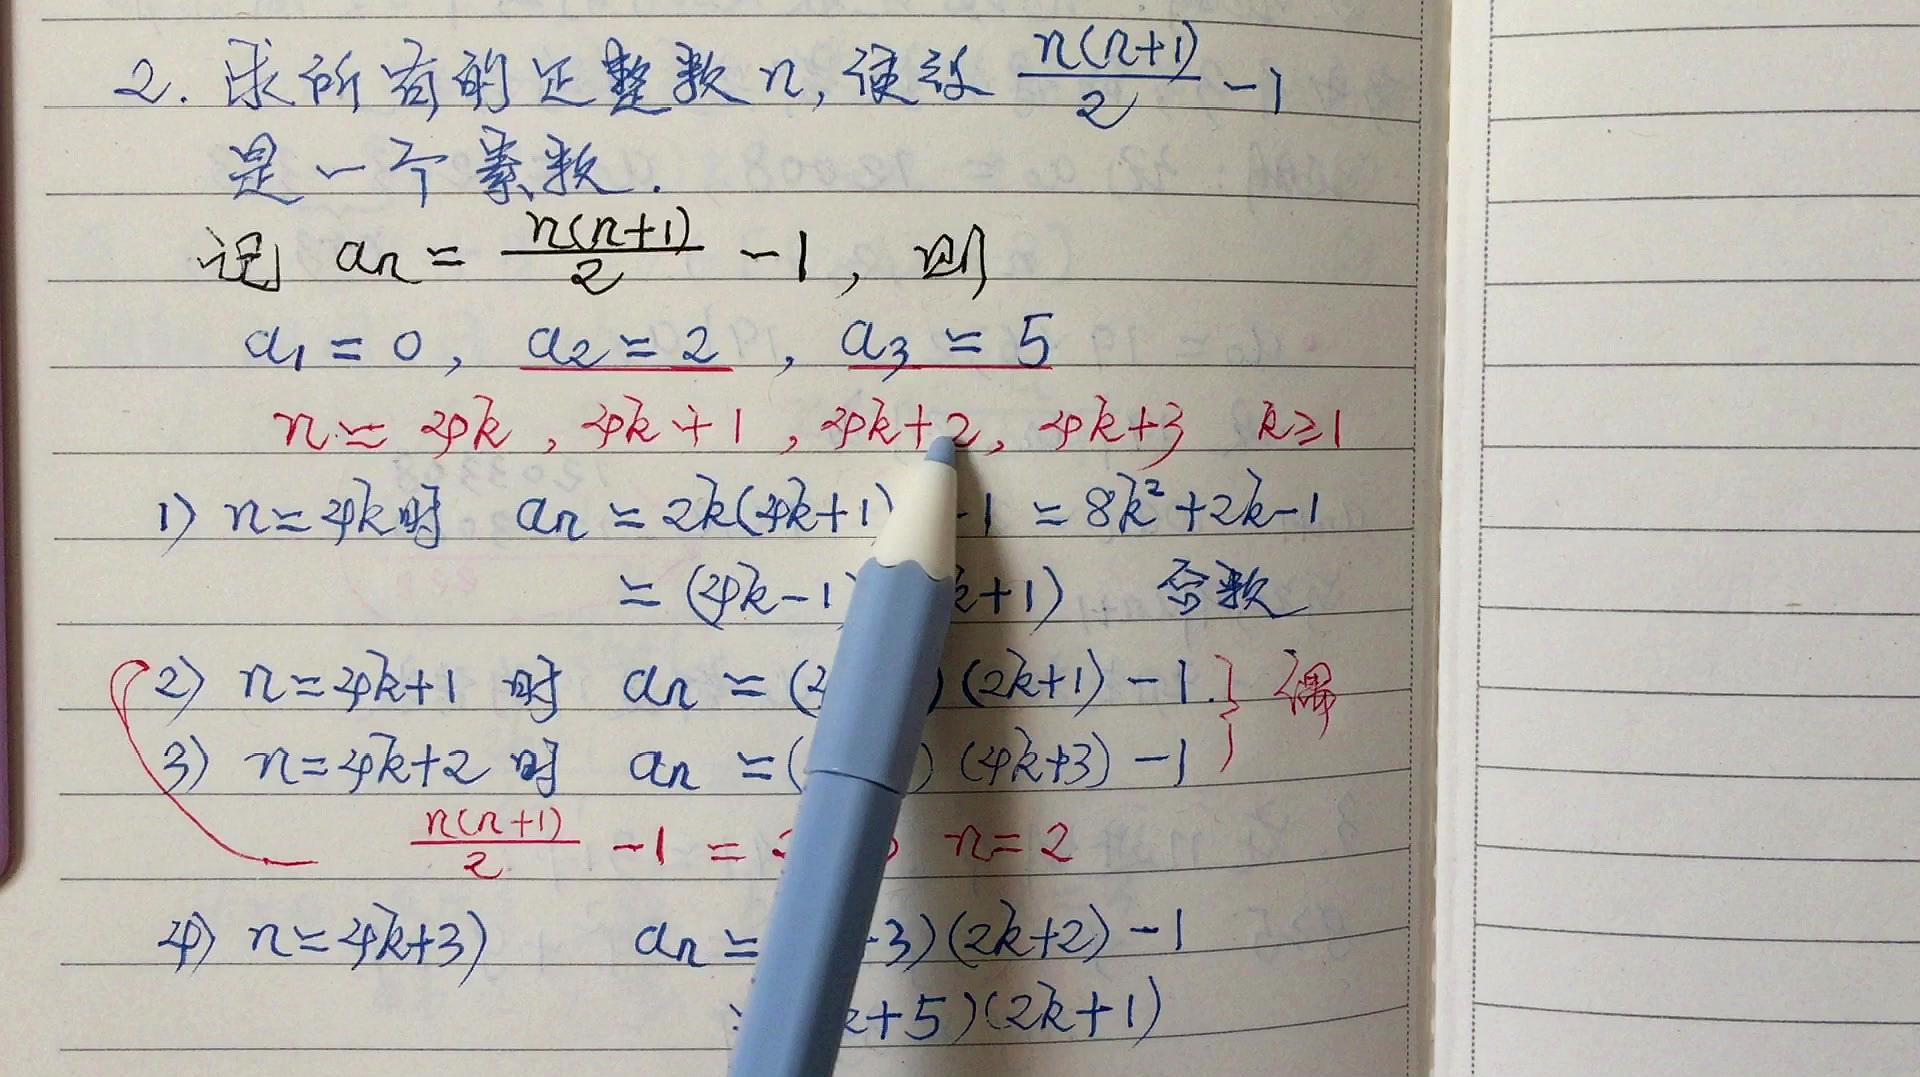 2. 求所有的正整数n, 使得 n(n+1)/2 -1
是一个素数.
记 an = n(n+1)/2 -1, 则
a1 = 0, a2 = 2, a3 = 5
n = 4k, 4k+1, 4k+2, 4k+3 k≥1
1) n=4k时 an = 2k(4k+1) -1 = 8k²+2k-1
= (4k-1) k+1) 合数
2) n=4k+1 时 an = ( )(2k+1) -1
3) n=4k+2 时 an = ( )(4k+3) -1
偶
n(n+1)/2 -1 = n=2
4) n=4k+3) an = 3)(2k+2) -1
k+5)(2k+1)